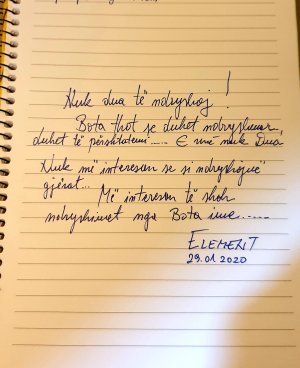 Nuk dua të ndryshoj !
Bota thot se duhet ndryshuar
duhet të përshtatemi..... E unë nuk Dua
Nuk më intereson se si ndryshojnë
gjërat...
Më intereson të shoh
ndryshimet nga Bota ime.....
ELEMENT
29.01 2020